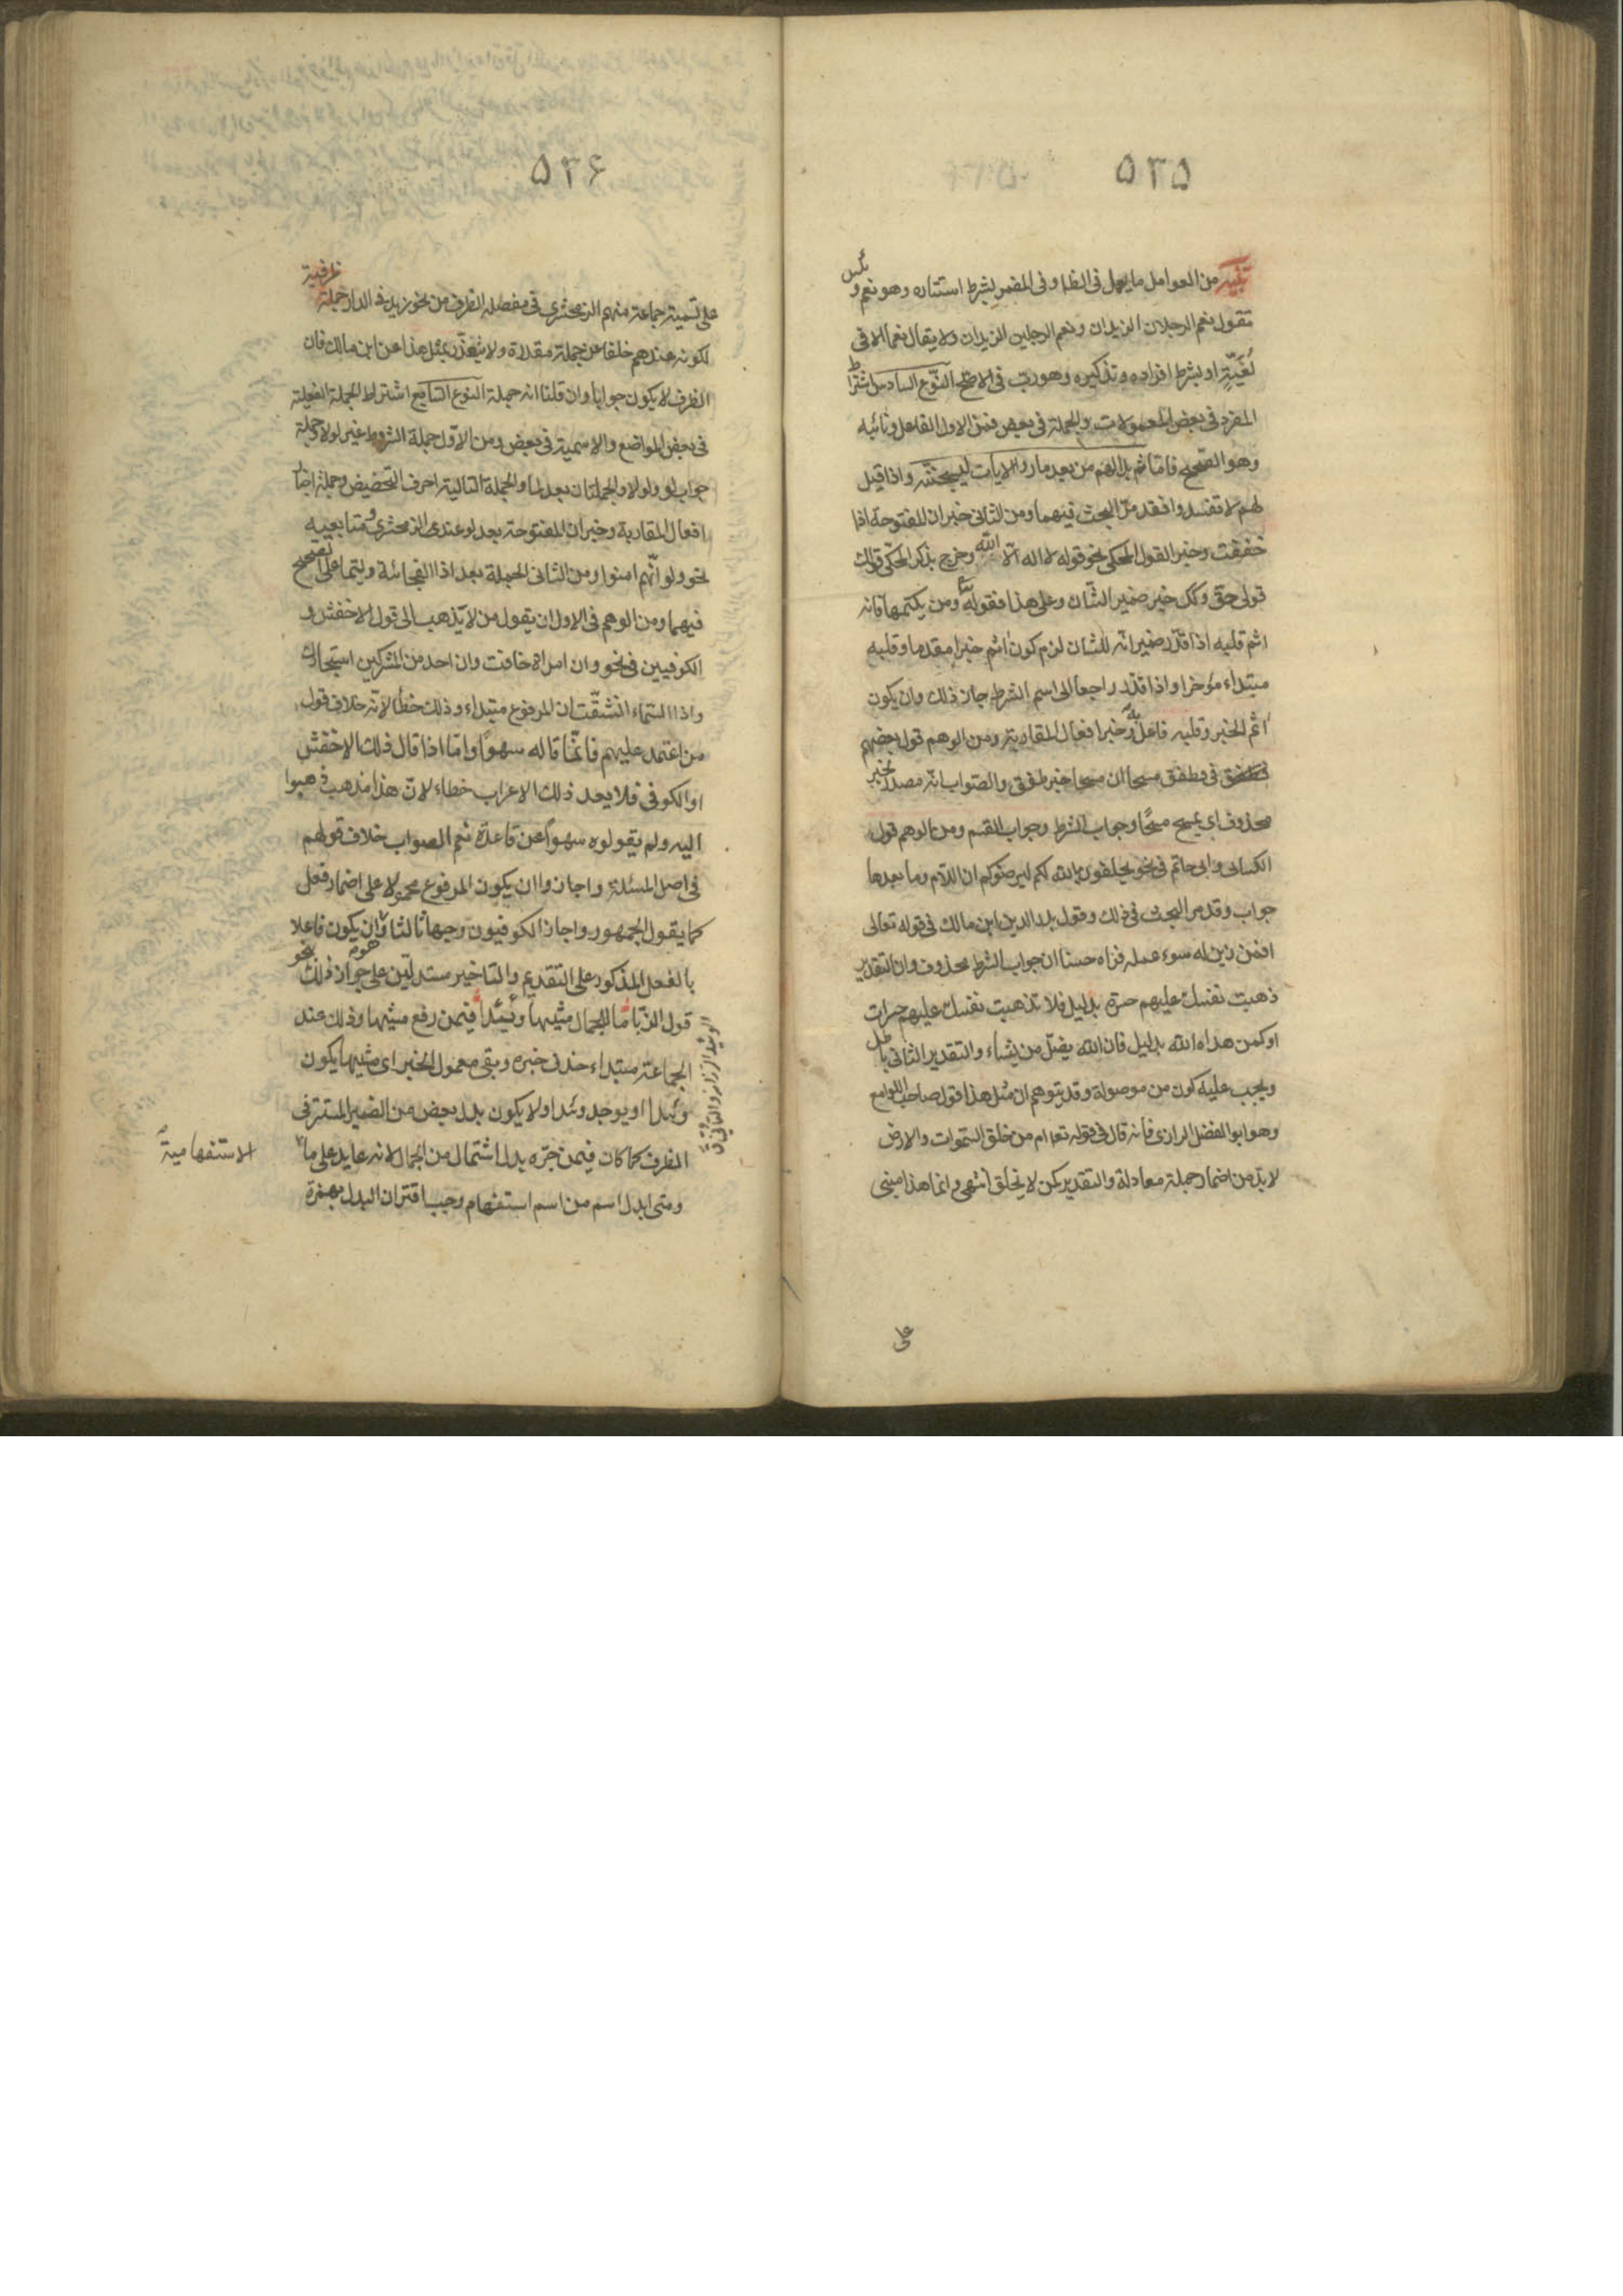 ٥٣٥
تنبيه من العوامل ما يعمل فى الظا وفى المضمر بشرط استتاره وهو نعم وبئس
تقول نعم الرجلان الزيدان ونعم الرجلين الزيدان ولا يقال نعما الا فى
لُغَيَّةٍ او بشرط افراده وتذكيره وهو ربّ فى الاصحّ النّوع السادس اشتراط
المفرد فى بعض المعمولات والجملة فى بعض فمن الاول الفاعل ونائبه
وهو الصّحيح فامّا ثم بدا لهم من بعد ما راوا الايات ليسجننّه واذا قيل
لهم لا تفسدوا فقد مرّ البحث فيهما ومن الثانى خبر ان المفتوحة اذا
خففت وخبر القول المحكى نحو قوله لا اله الّا اللّه وخرج بذكر المحكّى قولك
قولى حق وكك خبر ضمير الشّان وعلى هذا فقوله تعا ومن يكتمها فانه
اثم قلبه اذا قدّر ضمير انّه للشان لزم كون اثم خبرا مقدما وقلبه
مبتداء مؤخرا واذا قدّر راجعا الى اسم الشرط جاز ذلك وان يكون
اثم الخبر وقلبه فاعل به وخبر افعال المقاربة ومن الوهم قول بعضهم
فى وطفق مسحا ان مسحا خبر طفق والصّواب انّه مصدر لخبر
محذوف اى يمسح مسحًا وجواب الشرط وجواب القسم ومن الوهم قول
الكسائى وابى حاتم فى نحو يحلفون بالله لكم ليرضوكم ان اللّام وما بعدها
جواب وقد مر البحث فى ذلك وقول بدر الدين ابن مالك فى قوله تعالى
افمن زين له سوء عمله فراه حسنا ان جواب الشرط محذوف وان التقدير
ذهبت نفسك عليهم حسرة بدليل فلا تذهب نفسك عليهم حسرات
او كمن هداه الله بدليل فان الله يضلّ من يشاء والتقدير الثانى باطل
ويجب عليه كون من موصولة وقد يتوهم ان مثل هذا قول صاحب اللوامع
وهو ابو الفضل الرازى فانه قال فى قوله تعا ام من خلق السّموات والارض
لا بدّ من اضمار جملة معادلة والتقدير كمن لا يخلق انتهى وانما هذا مبنى
على
٥٣۶
على تسمية جماعة منهم الزمخشرى فى مفصله الظرف من نحو زيد فى الدار جملة ظرفية
لكونه عندهم خلفا عن جملة مقدرة ولا يعتذر بمثل هذا عن ابن مالك فان
الظرف لا يكون جوابا وان قلنا انه جملة النوع السّابع اشتراط الجملة الفعلية
فى بعض المواضع والاسمية فى بعض ومن الاوّل جملة الشرط غير لولا وجملة
جواب لو ولولا والجملتان بعد لما والجملة التالية احرف التحضيض وجملة اخبار
افعال المقاربة وخبر ان المفتوحة بعد لو عند الزمخشرى ومتابعيه
نحو ولو انّهم امنوا ومن الثانى الجملة بعد اذا الفجائية وليتما على الصحيح
فيهما ومن الوهم فى الاول ان يقول من لا يذهب الى قول الاخفش و
الكوفيين فى نحو وان امراة خافت وان احد من المشركين استجارك
واذا السّماء انشقّت ان المرفوع مبتداء وذلك خطأ لانّه خلاف قول
من اعتمد عليهم فانّما قاله سهوًا وامّا اذا قال ذلك الاخفش
او الكوفى فلا يعد ذلك الاعراب خطاء لانّ هذا مذهب ذهبوا
اليه ولم يقولوه سهوًا عن قاعدة نعم الصواب خلاف قولهم
فى اصل المسئلة واجازوا ان يكون المرفوع محمولا على اضمار فعل
كما يقول الجمهور واجاز الكوفيون وجها ثالثا وهو ان يكون فاعلا
بالفعل المذكور على التقديم والتاخير مستدلّين على جواز ذلك بنحو
قول الزبّا ما للجمال مشيها وئيدًا فيمن رفع مشيها وذلك عند
الجماعة مبتداء حذف خبره وبقى معمول الخبر اى مشيها يكون
وئيدا او يوجد وئيدا ولا يكون بدل بعض من الضمير المستتر فى
الظرف كما كان فيمن جرّه بدل اشتمال من الجمال لانه عايد على ما
ومتى ابدل اسم من اسم استفهام وجب اقتران البدل بهمزة
الاستفهامية